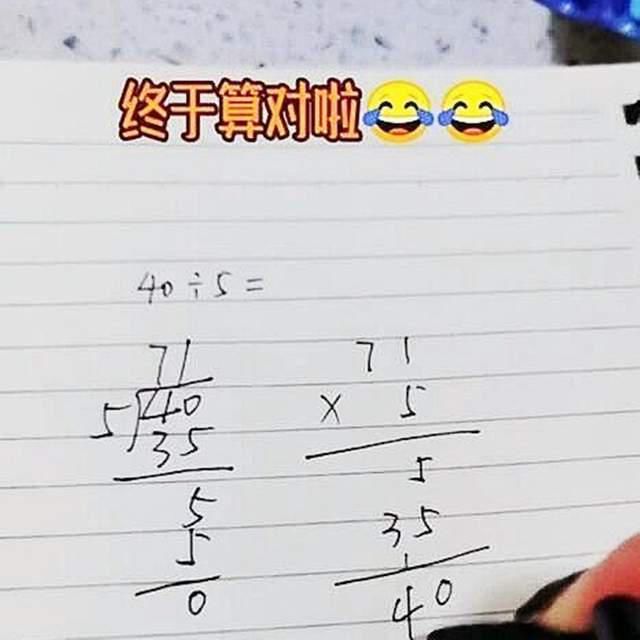 终于算对啦😂😂
40÷5=
71
5)40
35
5
5
0
71
× 5
5
35
40